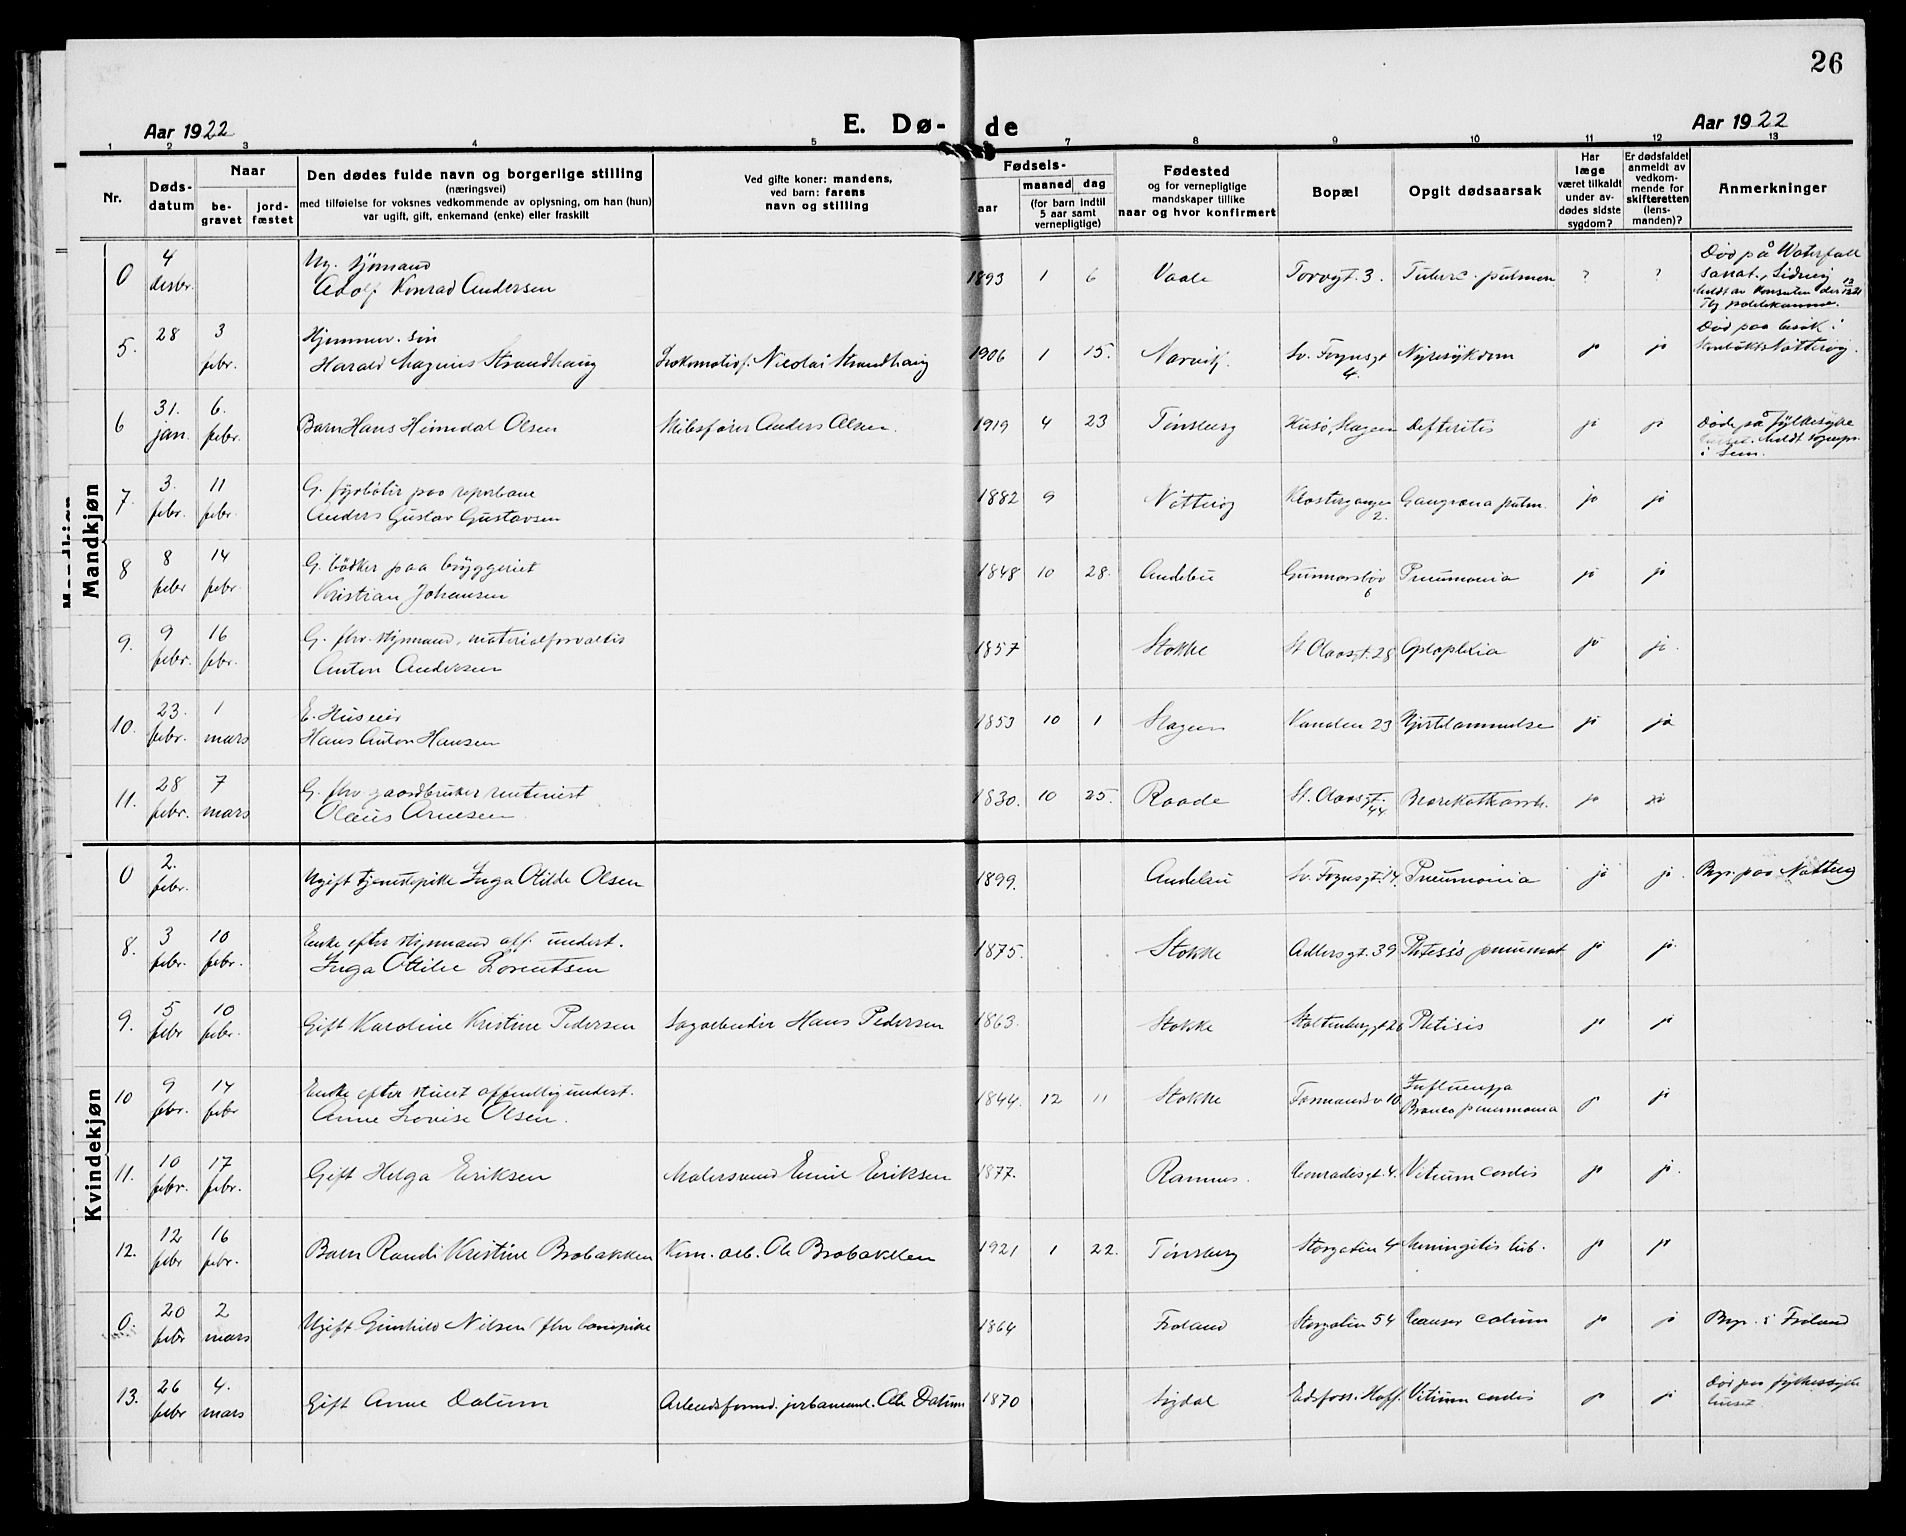 26
Aar 1922
E. Dø-
de
Aar 1922
1 2 3 4 5 7 8 9 10 11 12 13
Nr.
Døds-
datum
Naar
be-
gravet
jord-
fæstet
Den dødes fulde navn og borgerlige stilling
(næringsvei)
med tilføielse for voksnes vedkommende av oplysning, om han (hun)
var ugift, gift, enkemand (enke) eller fraskilt
Ved gifte koner: mandens,
ved barn: farens
navn og stilling
Fødsels-
aar
maaned dag
(for barn indtil
5 aar samt
vernepligtige)
Fødested
og for vernepligtige
mandskaper tillike
naar og hvor konfirmert
Bopæl
Opgit dødsaarsak
Har
læge
været tilkaldt
under av-
dødes sidste
sygdom?
Er dødsfaldet
anmeldt av
vedkom-
mende for
skifteretten
(lens-
manden)?
Anmerkninger
Mandkjøn
0 4 desbr. Ug. sjømand
Adolf Konrad Andersen 1893 1 6 Vaale Torvgt. 3. Tuberc. pulmon ? ? Død på Waterfall
sanat., Sidney
meldt av konsulen der 12/12 21
Tbg politikammer.
5. 28 3 febr. Hjemmev. søn
Harald Magnus Strandhaug Lokomotivf. Nicolai Strandhaug 1906 1 15. Narvik. Sv. Foynsgt 4. Nyresykdom ja ja Død paa besøk i
Nøtterøy.
6 31. jan. 6. febr. Barn Hans Heimdal Olsen Anders Olsen. 1919 4 23 Tønsberg Husø, Slagen Defteritis ja ja Døde på fylkesyke
huset. Meldt sognepr.
i Sem.
7. 3. febr. 11 febr. G. fyrbøter paa reperbane
Anders Gustav Gustavsen 1882 9 Nøtterøy Klostergangen 2. Gangræna pulm. ja ja
8 8 febr 14 febr. G. bødker paa bryggeriet
Kristian Johansen 1848 10 28. Andebu Gunnarsbøv 6 Pneumonia ja ja
9. 9 febr. 16 febr. G. fhv. styrmand, materialforvalter
Anton Andersen 1857 Stokke St Olavsgt. 28 Apoplexia ja ja.
10. 23. febr. 1 mars E. Huseier
Hans Anton Hansen 1853 10 1 Slagen Vanden 23 Hjertelammelse ja ja
11. 28 febr. 7 mars G. fhv gaardbruker rentenist
Olaus Arnesen 1830. 10 25. Raade St. Olavsgt. 44 ja ja
Kvindekjøn
0 2. febr. Ugift tjenestepike Inga Otilde Olsen 1899. Andebu Sv. Foynsgt. 14. Pneumonia ja ja. Begr. paa Nøtterøy
8. 3 febr. 10 febr. Enke efter styrmand off. underst.
Inga Ottilie Lorentsen 1875. Stokke Adlersgt. 39 Phtisis pneumat ja ja.
9. 5 febr 10 febr. Gift Karoline Kristine Pedersen Sagarbeider Hans Pedersen 1863. Stokke Stoltenberggt 26 Phtisis ja ja
10 9 febr. 14 febr Enke efter stuert offentlig underst.
Anne Lovise Olsen. 1844. 12 11 Stokke Farmandsv 10 Influenza
Bronco pneumonia ja ja
11. 10 febr. 17 febr. Gift Helga Eriksen Malersvend Emil Eriksen 1877. Ramnes. Conradisgt. 4. Vitium cordis ja ja.
12. 12 febr 16 febr. Barn Randi Kristine Brobakken Kom. arb. Ole Brobakken 1921 1 22. Tønsberg Storgaten 4 Meningitis tub. ja ja
0. 20 febr 2 mars Ugift Gunhild Nilsen (fhv barnepike 1864 Froland Storgaten 54 Cancer colum ja ja Begr. i Froland
13. 26 febr 4. mars Gift Anne Dalum Arbeidsformd. jernbaneanl. Ole Dalum 1870 Sigdal Eidsfoss. Hoff. Vitium cordis ja ja Død paa fylkessyke
huset